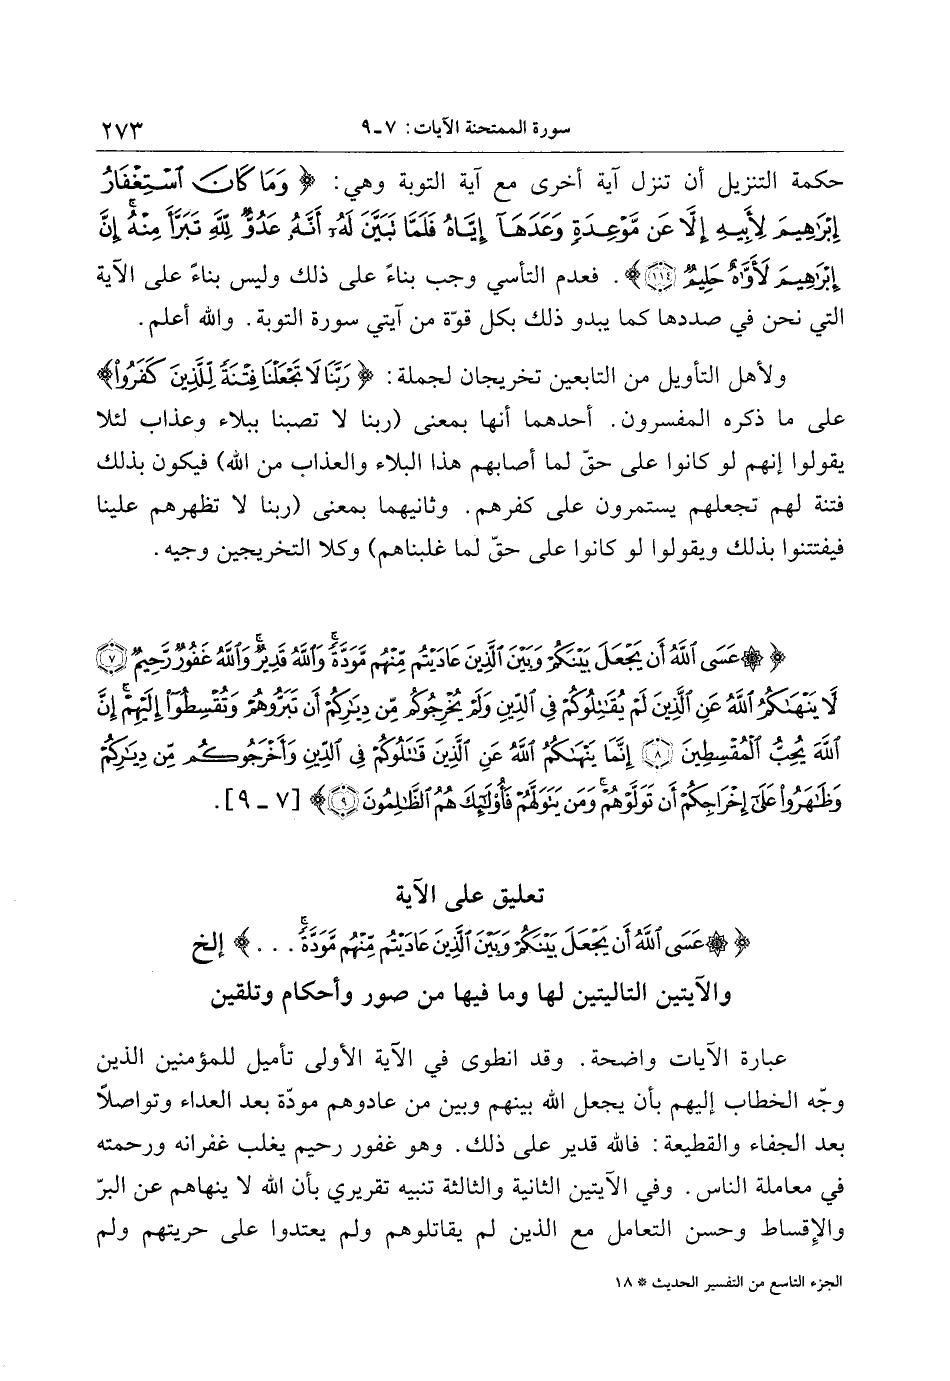 سورة الممتحنة الآيات: ٧ـ٩ ٢٧٣
حكمة التنزيل أن تنزل آية أخرى مع آية التوبة وهي: ﴿ وَمَا كَانَ ٱسْتِغْفَارُ
إِبْرَٰهِيمَ لِأَبِيهِ إِلَّا عَن مَّوْعِدَةٍ وَعَدَهَآ إِيَّاهُ فَلَمَّا تَبَيَّنَ لَهُۥٓ أَنَّهُۥ عَدُوٌّ لِّلَّهِ تَبَرَّأَ مِنْهُ ۚ إِنَّ
إِبْرَٰهِيمَ لَأَوَّٰهٌ حَلِيمٌ ﴿١١٤﴾ ﴾. فعدم التأسي وجب بناءً على ذلك وليس بناءً على الآية
التي نحن في صددها كما يبدو ذلك بكل قوّة من آيتي سورة التوبة. والله أعلم.
ولأهل التأويل من التابعين تخريجان لجملة: ﴿ رَبَّنَا لَا تَجْعَلْنَا فِتْنَةً لِّلَّذِينَ كَفَرُوا۟ ﴾
على ما ذكره المفسرون. أحدهما أنها بمعنى (ربنا لا تصبنا ببلاء وعذاب لئلا
يقولوا إنهم لو كانوا على حقّ لما أصابهم هذا البلاء والعذاب من الله) فيكون بذلك
فتنة لهم تجعلهم يستمرون على كفرهم. وثانيهما بمعنى (ربنا لا تظهرهم علينا
فيفتتنوا بذلك ويقولوا لو كانوا على حقّ لما غلبناهم) وكلا التخريجين وجيه.
﴿ ۞ عَسَى ٱللَّهُ أَن يَجْعَلَ بَيْنَكُمْ وَبَيْنَ ٱلَّذِينَ عَادَيْتُم مِّنْهُم مَّوَدَّةً ۚ وَٱللَّهُ قَدِيرٌ ۚ وَٱللَّهُ غَفُورٌ رَّحِيمٌ ﴿٧﴾
لَّا يَنْهَىٰكُمُ ٱللَّهُ عَنِ ٱلَّذِينَ لَمْ يُقَٰتِلُوكُمْ فِى ٱلدِّينِ وَلَمْ يُخْرِجُوكُم مِّن دِيَٰرِكُمْ أَن تَبَرُّوهُمْ وَتُقْسِطُوٓا۟ إِلَيْهِمْ ۚ إِنَّ
ٱللَّهَ يُحِبُّ ٱلْمُقْسِطِينَ ﴿٨﴾ إِنَّمَا يَنْهَىٰكُمُ ٱللَّهُ عَنِ ٱلَّذِينَ قَٰتَلُوكُمْ فِى ٱلدِّينِ وَأَخْرَجُوكُم مِّن دِيَٰرِكُمْ
وَظَٰهَرُوا۟ عَلَىٰٓ إِخْرَاجِكُمْ أَن تَوَلَّوْهُمْ ۚ وَمَن يَتَوَلَّهُمْ فَأُو۟لَٰٓئِكَ هُمُ ٱلظَّٰلِمُونَ ﴿٩﴾ ﴾ [٧ ـ ٩].
تعليق على الآية
﴿ ۞ عَسَى ٱللَّهُ أَن يَجْعَلَ بَيْنَكُمْ وَبَيْنَ ٱلَّذِينَ عَادَيْتُم مِّنْهُم مَّوَدَّةً ۚ ... ﴾ إلخ
والآيتين التاليتين لها وما فيها من صور وأحكام وتلقين
عبارة الآيات واضحة. وقد انطوى في الآية الأولى تأميل للمؤمنين الذين
وجّه الخطاب إليهم بأن يجعل الله بينهم وبين من عادوهم مودّة بعد العداء وتواصلاً
بعد الجفاء والقطيعة: فالله قدير على ذلك. وهو غفور رحيم يغلب غفرانه ورحمته
في معاملة الناس. وفي الآيتين الثانية والثالثة تنبيه تقريري بأن الله لا ينهاهم عن البرّ
والإقساط وحسن التعامل مع الذين لم يقاتلوهم ولم يعتدوا على حريتهم ولم
الجزء التاسع من التفسير الحديث * ١٨